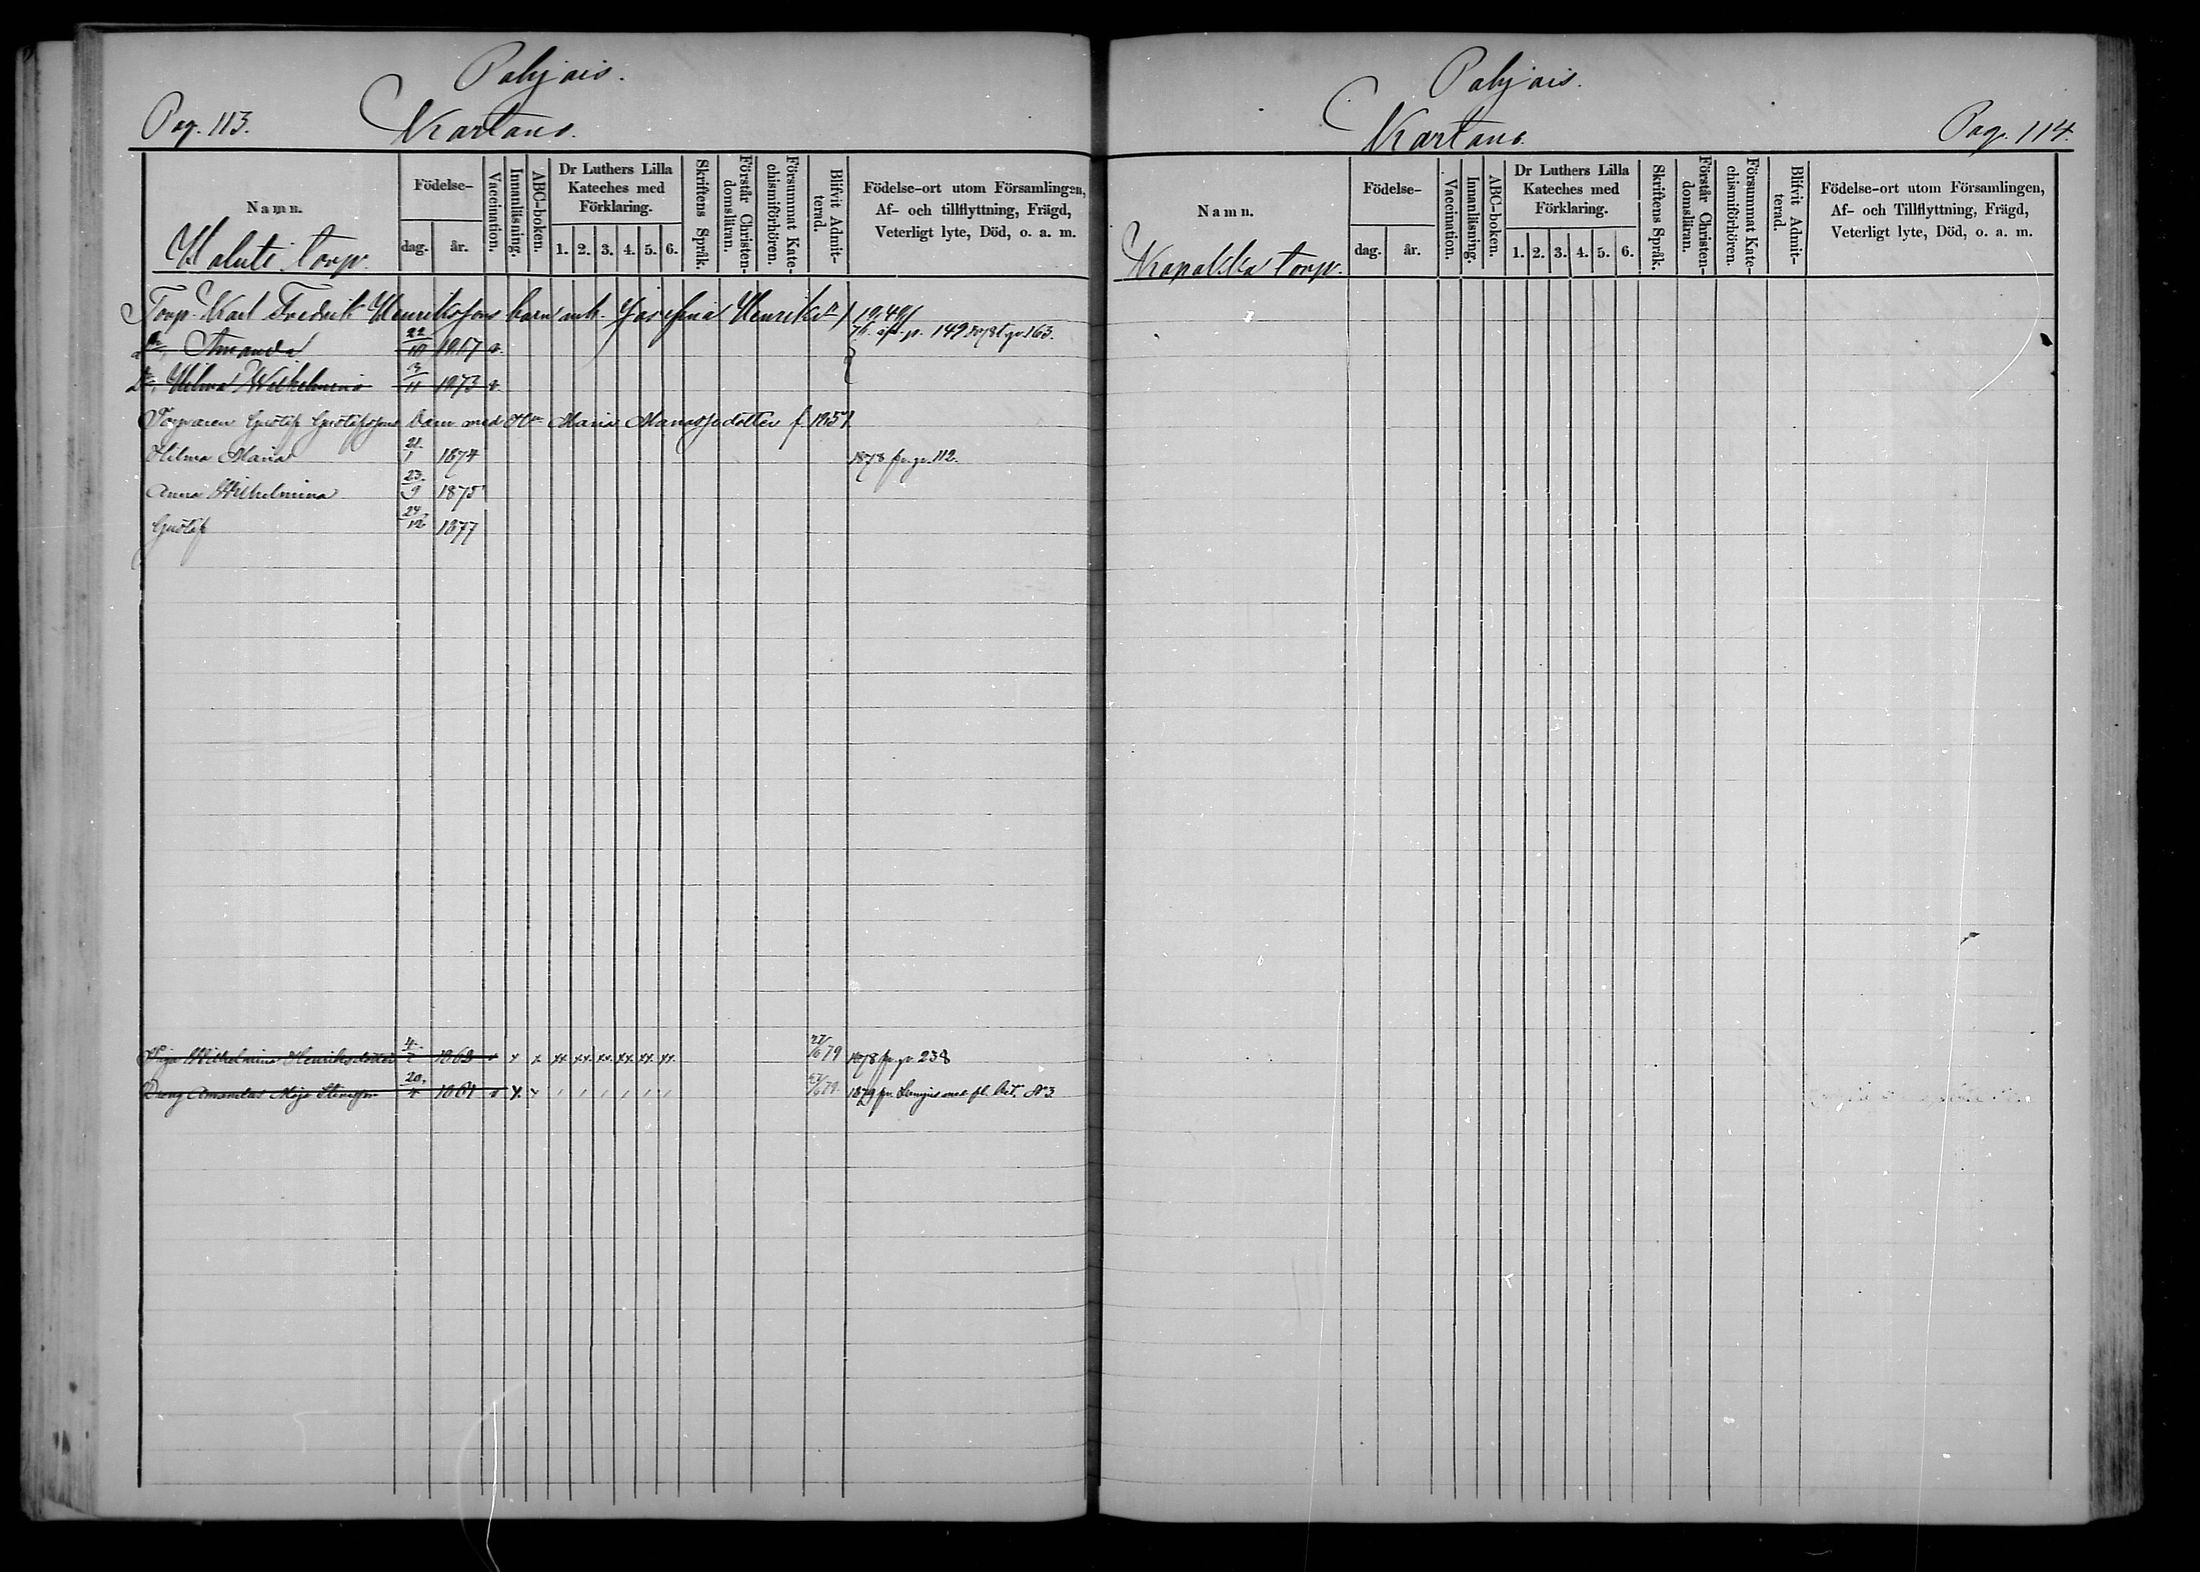 Pohjois.
Pag. 113. Kartano.
Namn. Födelse- dag. år. Vaccination. Innanläsning. ABC-boken. Dr Luthers Lilla Kateches med Förklaring. 1. 2. 3. 4. 5. 6. Skriftens Språk. Förstår Christen-domsläran. Försummat Kate-chismiförhören. Blifvit Admit-terad. Födelse-ort utom Församlingen, Af- och tillflyttning, Frägd, Veterligt lyte, Död, o. a. m.
Haluti torp.
Torp. Karl Fredrik Henrikssons barn m. h. Josefina Henriksdr / 1849/
Dr, Amanda 22/10 v. 76 p. 149 163.
Dr, Hilma Wilhelmina 13/11 1873 v.
Torparen Gustaf Gustafssons Barn med Hu Maria Manassedotter f 1851
Hilma Maria 21/1 1874 1878 fr. p. 112.
Anna Wilhelmina 23/9 1875
Gustaf 24/12 1877
Piga Wilhelmina Henriksdotter 4/2 1863 v x x xx xx xx xx xx xx 27/6 79 1878 fr. p. 238
Dreng Amandus 20/4 1861 v x x / / / / / / 27/6 79. 1879 fr. med fl. Bet. No 3
Pohjois.
Kartano. Pag. 114.
Namn. Födelse- dag. år. Vaccination. Innanläsning. ABC-boken. Dr Luthers Lilla Kateches med Förklaring. 1. 2. 3. 4. 5. 6. Skriftens Språk. Förstår Christen-domsläran. Försummat Kate-chismiförhören. Blifvit Admit-terad. Födelse-ort utom Församlingen, Af- och Tillflyttning, Frägd, Veterligt lyte, Död, o. a. m.
Kapalska torp.